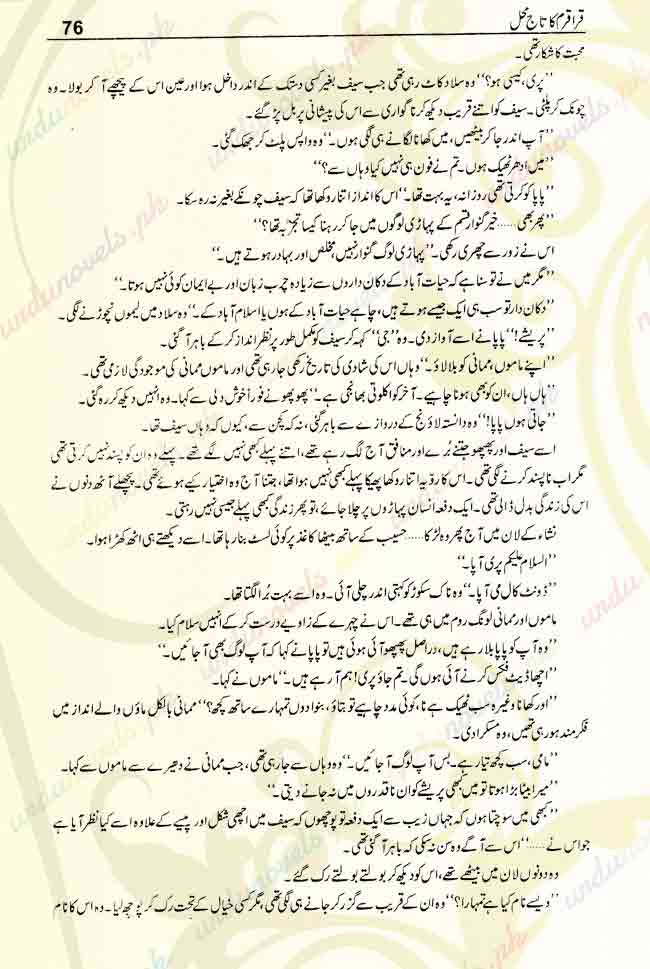 قراقرم کا تاج محل
76
محبت کا شکار تھی۔
’’پری، کیسی ہو؟‘‘ وہ سلاد کاٹ رہی تھی جب سیف بغیر کسی دستک کے اندر داخل ہوا اور عین اس کے پیچھے آ کر بولا۔ وہ
چونک کر پلٹی۔ سیف کو اتنے قریب دیکھ کر ناگواری سے اس کی پیشانی پر بل پڑ گئے۔
’’آپ اندر جا کر بیٹھیں، میں کھانا لگانے ہی لگی ہوں۔‘‘ وہ واپس پلٹ کر جھک گئی۔
’’میں ادھر ٹھیک ہوں۔ تم نے فون ہی نہیں کیا وہاں سے؟‘‘
’’پاپا کو کرتی تھی روزانہ، یہ بہت تھا۔‘‘ اس کا انداز اتنا روکھا تھا کہ سیف چونکے بغیر نہ رہ سکا۔
’’پھر بھی...... خیر گنوار قسم کے پہاڑی لوگوں میں جا کر رہنا کیسا تجربہ تھا؟‘‘
اس نے زور سے چھری رکھی۔ ’’پہاڑی لوگ گنوار نہیں، مخلص اور بہادر ہوتے ہیں۔‘‘
’’مگر میں نے تو سنا ہے کہ حیات آباد کے دکان داروں سے زیادہ چرب زبان اور بے ایمان کوئی نہیں ہوتا۔‘‘
’’دکان دار تو سب ہی ایک جیسے ہوتے ہیں، چاہے حیات آباد کے ہوں یا اسلام آباد کے۔‘‘ وہ سلاد میں لیموں نچوڑنے لگی۔
’’پریشے!‘‘ پاپا نے اسے آواز دی۔ وہ ’’جی‘‘ کہہ کر سیف کو مکمل طور پر نظر انداز کر کے باہر آ گئی۔
’’اپنے ماموں، ممانی کو بلا لاؤ۔‘‘ وہاں اس کی شادی کی تاریخ رکھی جا رہی تھی اور ماموں ممانی کی موجودگی لازمی تھی۔
’’ہاں ہاں، ان کو بھی ہونا چاہیے۔ آخر کو اکلوتی بھانجی ہے۔‘‘ پھوپھو نے فوراً خوش دلی سے کہا۔ وہ انہیں دیکھ کر رہ گئی۔
’’جاتی ہوں پاپا!‘‘ وہ دانستہ لاؤنج کے دروازے سے باہر گئی، نہ کہ کچن سے، کیوں کہ وہاں سیف تھا۔
اسے سیف اور پھپھو جتنے بُرے اور منافق آج لگ رہے تھے، اتنے پہلے کبھی نہیں لگے تھے۔ پہلے وہ ان کو پسند نہیں کرتی تھی
مگر اب ناپسند کرنے لگی تھی۔ اس کا رویہ اتنا روکھا پھیکا پہلے کبھی نہیں ہوا تھا، جتنا آج وہ اختیار کیے ہوئے تھی۔ پچھلے آٹھ دنوں نے
اس کی زندگی بدل ڈالی تھی۔ ایک دفعہ انسان پہاڑوں پر چلا جائے، تو پھر زندگی کبھی پہلے جیسی نہیں رہتی۔
نشاء کے لان میں آج پھر وہ لڑکا...... حسیب کے ساتھ بیٹھا کاغذ پر کوئی لسٹ بنا رہا تھا۔ اسے دیکھتے ہی اٹھ کھڑا ہوا۔
’’السلام علیکم پری آپا۔‘‘
’’ڈونٹ کال می آپا۔‘‘ وہ ناک سکوڑ کو کہتی اندر چلی آئی۔ وہ اسے بہت بُرا لگتا تھا۔
ماموں اور ممانی لونگ روم میں ہی تھے۔ اس نے چہرے کے زاویے درست کر کے انہیں سلام کیا۔
’’وہ آپ کو پاپا بلا رہے ہیں، دراصل پھپھو آئی ہوئی ہیں تو پاپا نے کہا کہ آپ لوگ بھی آ جائیں۔‘‘
’’اچھا ڈیٹ فکس کرنے آئی ہوں گی۔ تم جاؤ پری! ہم آ رہے ہیں۔‘‘ ماموں نے کہا۔
’’اور کھانا وغیرہ سب ٹھیک ہے نا، کوئی مدد چاہیے تو بتاؤ، بنوا دوں تمہارے ساتھ کچھ؟‘‘ ممانی بالکل ماؤں والے انداز میں
فکرمند ہو رہی تھیں، وہ مسکرا دی۔
’’مامی، سب کچھ تیار ہے۔ بس آپ لوگ آ جائیں۔‘‘ وہ وہاں سے جا رہی تھی، جب ممانی نے دھیرے سے ماموں سے کہا۔
’’میرا بیٹا بڑا ہوتا تو میں کبھی پریشے کو ان ناقدروں میں نہ جانے دیتی۔‘‘
’’کبھی میں سوچتا ہوں کہ جہاں زیب سے ایک دفعہ تو پوچھوں کہ سیف میں اچھی شکل اور پیسے کے علاوہ اسے کیا نظر آیا ہے
جو اس نے......‘‘ اس سے آگے وہ سن نہ سکی کہ باہر آ گئی تھی۔
وہ دونوں لان میں بیٹھے تھے، اس کو دیکھ کر بولتے بولتے رک گئے۔
’’ویسے نام کیا ہے تمہارا؟‘‘ وہ ان کے قریب سے گزر کر جانے ہی لگی تھی، مگر کسی خیال کے تحت رک کر پوچھ لیا۔ وہ اس کا نام
urdunovels.pk